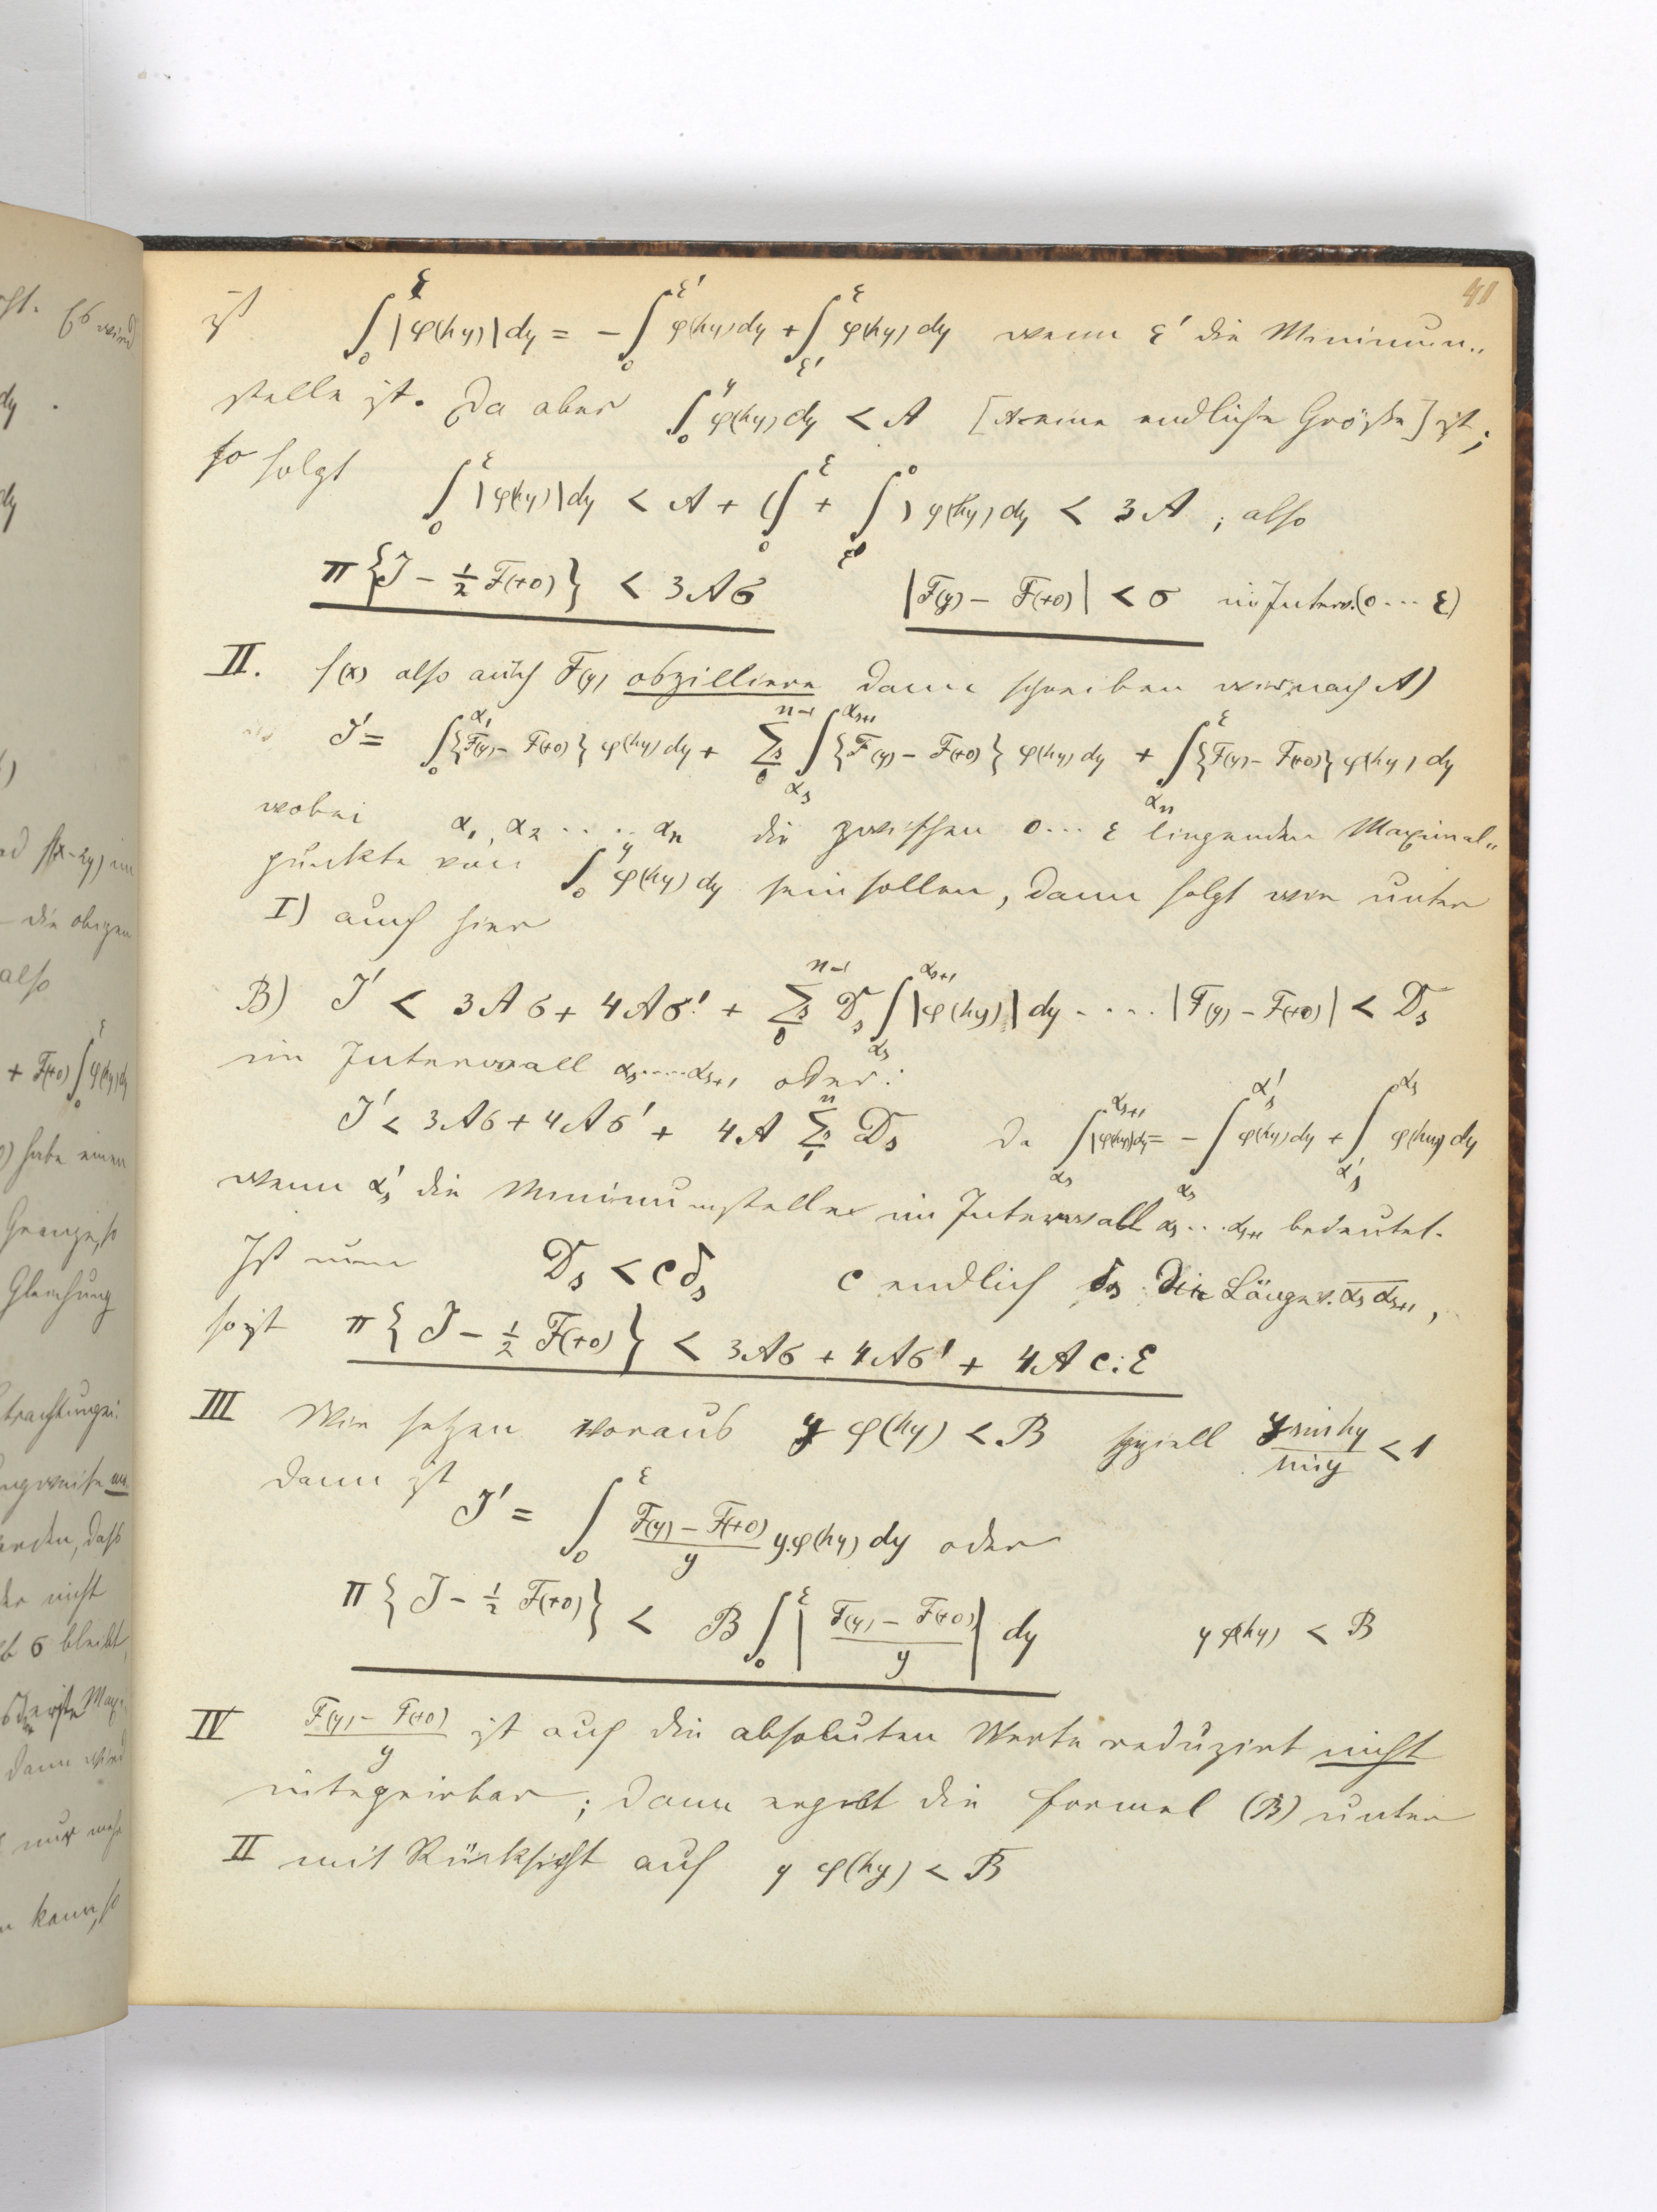 41
ist ∫₀^ε |φ(hy)| dy = − ∫₀^ε' φ(hy) dy + ∫_ε'^ε φ(hy) dy wenn ε' die Minimum„
stelle ist. Da aber ∫₀^y φ(hy) dy < A [A eine endliche Größe] ist;
so folgt ∫₀^ε |φ(hy)| dy < A + (∫₀^ε + ∫_ε'^0) φ(hy) dy < 3A ; also
π {J − ½ F(+0)} < 3Aσ |F(y) − F(+0)| < σ im Interv. (0 ... ε)
II. f(x) also auch F(y) obzilliere dann schreiben wir nach A)
J' = ∫₀^α₁ {F(y) − F(+0)} φ(hy) dy + Σs₀^{n−1} ∫_{αs}^{αs+1} {F(y) − F(+0)} φ(hy) dy + ∫_{αn}^ε {F(y) − F(+0)} φ(hy) dy
wobei α₁, α₂ .... αn die zwischen 0 ... ε liegenden Maximal„
punkte von ∫₀^y φ(hy) dy sein sollen, dann folgt wie unter
I) auch hier
B) J' < 3Aσ + 4Aσ' + Σs₀^{n−1} Ds ∫_{αs}^{αs+1} |φ(hy)| dy .... |F(y) − F(+0)| < Ds
im Intervall αs ..... αs+1 oder:
J' < 3Aσ + 4Aσ' + 4A Σs₁^n Ds da ∫_{αs}^{αs+1} |φ(hy)| dy = − ∫_{αs}^{αs'} φ(hy) dy + ∫_{αs'}^{αs} φ(hy) dy
wenn αs' die Minimumstelle im Intervall αs ... αs+1 bedeutet.
Ist nun Ds < c δs c endlich δs die Länge v. αs αs+1,
so ist π {J − ½ F(+0)} < 3Aσ + 4Aσ' + 4A c.ε
III Wir setzen voraus y φ(hy) < B speziell y sin hy / sin y < 1
dann ist J' = ∫₀^ε (F(y) − F(+0))/y y.φ(hy) dy oder
π {J − ½ F(+0)} < B ∫₀^ε |(F(y) − F(+0))/y| dy y φ(hy) < B
IV (F(y) − F(+0))/y ist auf die absoluten Werte reduzirt nicht
integrirbar; dann ergibt die Formel (B) unter
II mit Rücksicht auf y φ(hy) < B